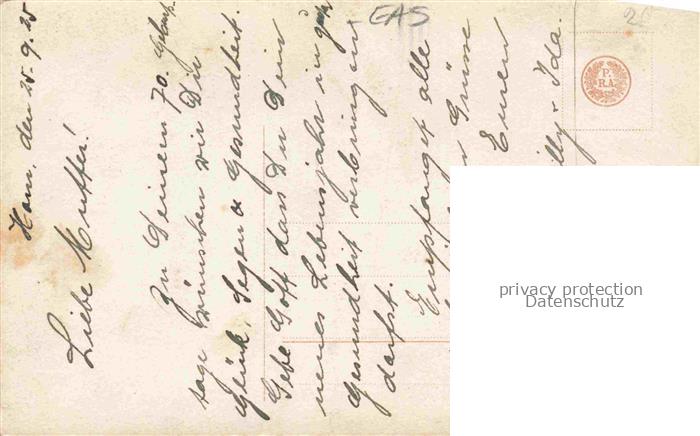 Ham, den 25.9.25
Liebe Mutter!
Zu Deinem 70. Geburts
tage wünschen wir Dir
Glück, Segen & Gesundheit.
Gebe Gott dass Du Dein
neues Lebensjahr in
Gesundheit verbringen
darfst.
Empfanget alle
Grüsse
Euren
Ida.
EAS
P.
R.A.
privacy protection
Datenschutz